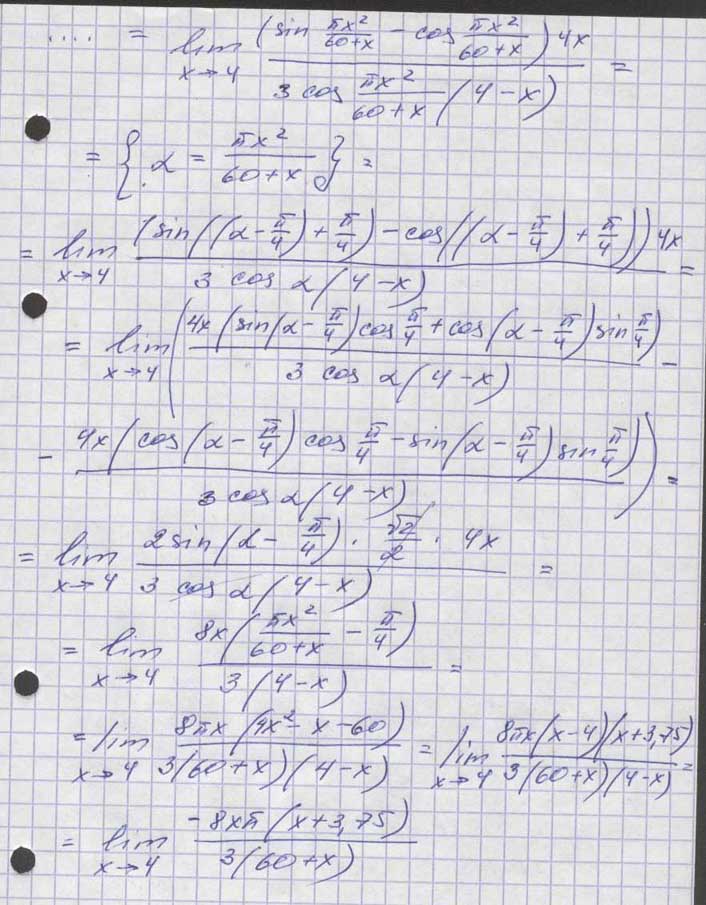 .... = lim x→4 ((sin πx²/(60+x) - cos πx²/(60+x)) 4x) / (3 cos πx²/(60+x) (4-x)) =
= { α = πx²/(60+x) } =
= lim x→4 ((sin((α-π/4)+π/4) - cos((α-π/4)+π/4)) 4x) / (3 cos α (4-x)) =
= lim x→4 ( (4x (sin(α-π/4) cos π/4 + cos(α-π/4) sin π/4)) / (3 cos α (4-x)) -
- (4x (cos(α-π/4) cos π/4 - sin(α-π/4) sin π/4)) / (3 cos α (4-x)) ) =
= lim x→4 (2 sin(α-π/4) · √2/2 · 4x) / (3 cos α (4-x)) =
= lim x→4 (8x (πx²/(60+x) - π/4)) / (3(4-x)) =
= lim x→4 (8πx (4x²-x-60)) / (3(60+x)(4-x)) = lim x→4 (8πx(x-4)(x+3,75)) / (3(60+x)(4-x)) =
= lim x→4 (-8xπ (x+3,75)) / (3(60+x))